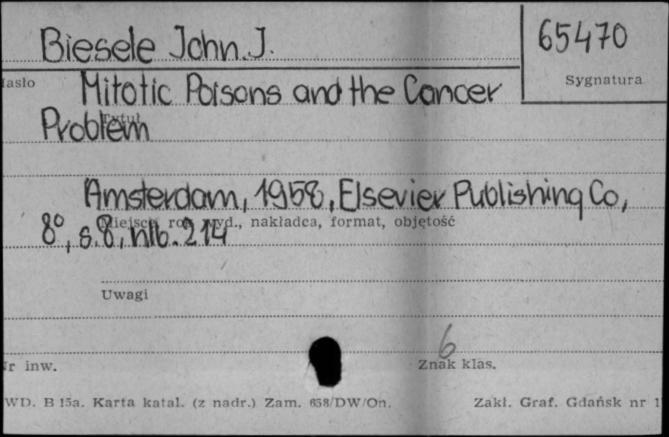 Biesele John J.
65470
Hasło
Sygnatura
Mitotic Poisons and the Cancer
Tytuł
Problem
Amsterdam, 1958, Elsevier Publishing Co,
Miejsce, rok wyd., nakładca, format, objętość
8°, s. 8, nlb. 214
Uwagi
6
Nr inw.
Znak klas.
WD. B 15a. Karta katal. (z nadr.) Zam. 658/DW/On.
Zakł. Graf. Gdańsk nr 1